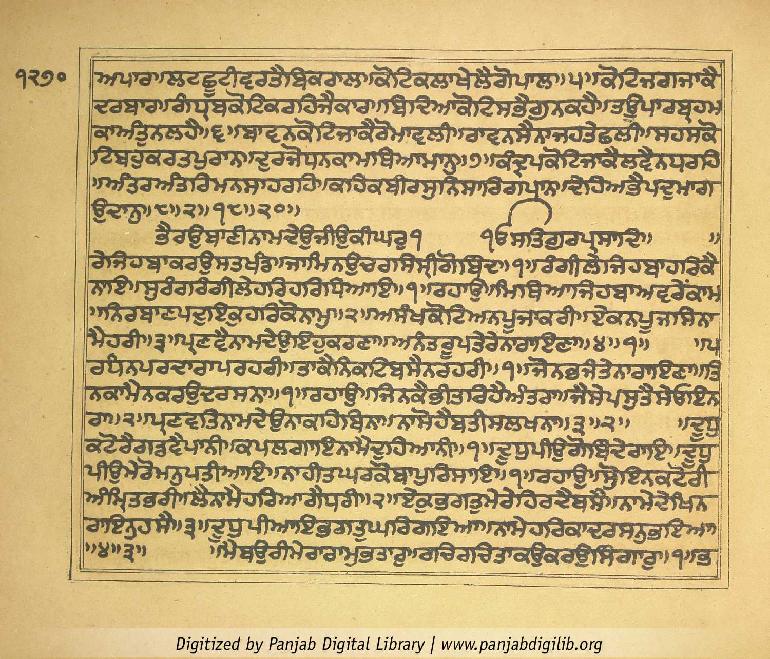 ੧੨੭੦
ਅਪਾਰਾ॥ਲਟਛੂਟੀਵਰਤੈਬਿਕਰਾਲਾ॥ਕੋਟਿਕਲਾਖੇਲੈਗੋਪਾਲਾ॥੫॥ਕੋਟਿਜਗਜਾਕੈ
ਦਰਬਾਰਾ॥ਗੰਧ੍ਰਬਕੋਟਿਕਰਹਿਜੈਕਾਰਾ॥ਬਿਦਿਆਕੋਟਿਸਭੈਗੁਨਕਹੈ॥ਤਊਪਾਰਬ੍ਰਹਮ
ਕਾਅੰਤੁਨਲਹੈ॥੬॥ਬਾਵਨਕੋਟਿਜਾਕੈਰੋਮਾਵਲੀ॥ਰਾਵਨਸੈਨਾਜਹਤੇਛਲੀ॥ਸਹਸਕੋ
ਟਿਬਹੁਕਹਤਪੁਰਾਨ॥ਦੁਰਜੋਧਨਕਾਮਥਿਆਮਾਨੁ॥੭॥ਕੰਦ੍ਰਪਕੋਟਿਜਾਕੈਲਵੈਨਧਰਹਿ
॥ਅੰਤਰਅੰਤਰਿਮਨਸਾਹਰਹਿ॥ਕਹਿਕਬੀਰਸੁਨਿਸਾਰਿਗਪਾਨ॥ਦੇਹਿਅਭੈਪਦੁਮਾਗ
ਉਦਾਨੁ॥੮॥੨॥੧੮॥੨੦॥
ਭੈਰਉਬਾਣੀਨਾਮਦੇਉਜੀਉਕੀਘਰੁ੧ ੴਸਤਿਗੁਰਪ੍ਰਸਾਦਿ॥ ॥
ਰੇਜਿਹਬਾਕਰਉਸਤਖੰਡ॥ਜਾਮਿਨਉਚਰਸਿਸ੍ਰੀਗੋਬਿੰਦ॥੧॥ਰੰਗੀਲੇਜਿਹਬਾਹਰਿਕੈ
ਨਾਇ॥ਸੁਰੰਗਰੰਗੀਲੇਹਰਿਹਰਿਧਿਆਇ॥੧॥ਰਹਾਉ॥ਮਿਥਿਆਜਿਹਬਾਅਵਰੇਂਕਾਮ
॥ਨਿਰਬਾਣਪਦੁਇਕੁਹਰਿਕੋਨਾਮੁ॥੨॥ਅਸੰਖਕੋਟਿਅਨਪੂਜਾਕਰੀ॥ਏਕਨਪੂਜਸਿਨਾ
ਮੈਹਰੀ॥੩॥ਪ੍ਰਣਵੈਨਾਮਦੇਉਇਹੁਕਰਣਾ॥ਅਨੰਤਰੂਪਤੇਰੇਨਾਰਾਇਣਾ॥੪॥੧॥ ॥ਪ
ਰਧਨਪਰਦਾਰਾਪਰਹਰੀ॥ਤਾਕੈਨਿਕਟਿਬਸੈਨਰਹਰੀ॥੧॥ਜੋਨਭਜੰਤੇਨਾਰਾਇਣਾ॥ਤਿ
ਨਕਾਮੈਨਕਰਉਦਰਸਨਾ॥੧॥ਰਹਾਉ॥ਜਿਨਕੈਭੀਤਰਿਹੈਅੰਤਰਾ॥ਜੈਸੇਪਸੁਤੈਸੇਓਇਨ
ਰਾ॥੨॥ਪ੍ਰਣਵਤਿਨਾਮਦੇਉਨਾਕਹਿਬਿਨਾ॥ਨਾਸੋਹੈਬਤੀਸਲਖਨਾ॥੩॥੨॥ ॥ਦੂਧੁ
ਕਟੋਰੈਗਡਵੈਪਾਨੀ॥ਕਪਲਗਾਇਨਾਮੈਦੁਹਿਆਨੀ॥੧॥ਦੂਧੁਪੀਉਗੋਬਿੰਦੇਰਾਇ॥ਦੂਧੁ
ਪੀਉਮੇਰੋਮਨੁਪਤੀਆਇ॥ਨਾਹੀਤਘਰਕੋਬਾਪੁਰਿਸਾਇ॥੧॥ਰਹਾਉ॥ਸੋੁਇਨਕਟੋਰੀ
ਅੰਮ੍ਰਿਤਭਰੀ॥ਲੈਨਾਮੈਹਰਿਆਗੈਧਰੀ॥੨॥ਏਕੁਭਗਤੁਮੇਰੇਹਿਰਦੈਬਸੈ॥ਨਾਮੇਦੇਖਿਨ
ਰਾਇਨੁਹਸੈ॥੩॥ਦੂਧੁਪੀਆਇਭਗਤੁਘਰਿਗਇਆ॥ਨਾਮੇਹਰਿਕਾਦਰਸਨੁਭਇਆ
॥੪॥੩॥ ॥ਮੈਬਉਰੀਮੇਰਾਰਾਮੁਭਤਾਰੁ॥ਰਚਿਰਚਿਤਾਕਉਕਰਉਸਿੰਗਾਰੁ॥੧॥ਭ
Digitized by Panjab Digital Library | www.panjabdigilib.org